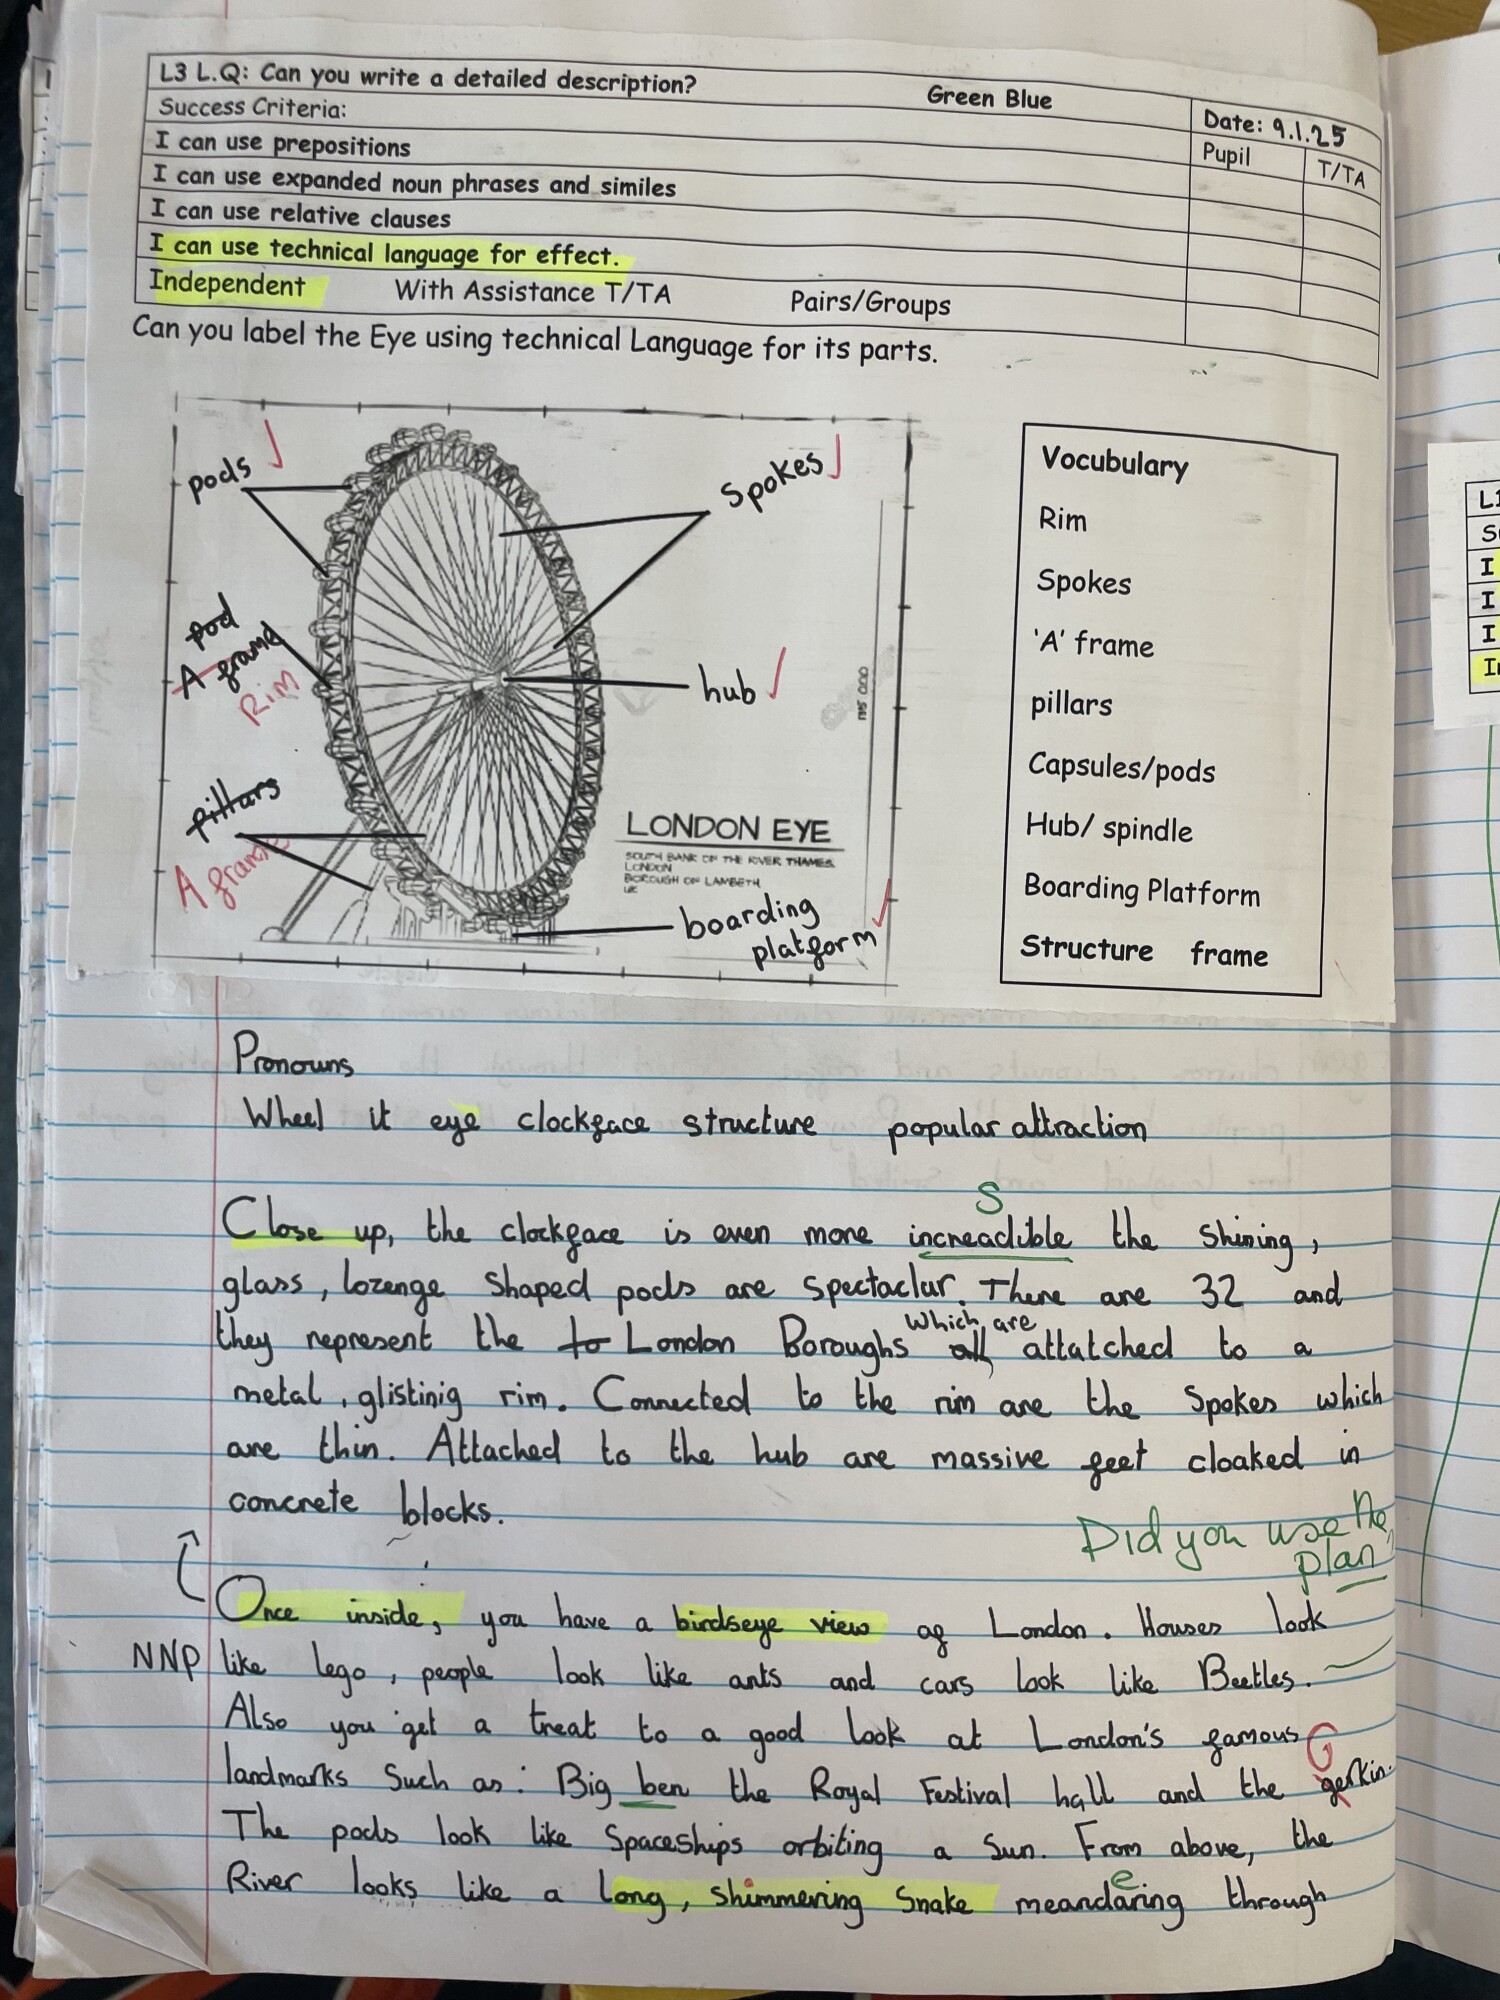 L3 L.Q: Can you write a detailed description? Green Blue Date: 9.1.25
Success Criteria: Pupil T/TA
I can use prepositions
I can use expanded noun phrases and similes
I can use relative clauses
I can use technical language for effect.
Independent With Assistance T/TA Pairs/Groups
Can you label the Eye using technical Language for its parts.
pods
Spokes
pod
A frame
Rim
hub
pillars
A frame
boarding
platform
195 000
LONDON EYE
SOUTH BANK OF THE RIVER THAMES,
LONDON
BOROUGH OF LAMBETH
UK
Vocubulary
Rim
Spokes
'A' frame
pillars
Capsules/pods
Hub/ spindle
Boarding Platform
Structure frame
Pronouns
Wheel it eye clockface structure popular attraction
S
Close up, the clockface is even more increadible the Shining,
glass, lozenge Shaped pods are Spectaclur. There are 32 and
which are
they represent the to London Boroughs all attatched to a
metal, glistinig rim. Connected to the rim are the Spokes which
are thin. Attached to the hub are massive feet cloaked in
concrete blocks.
Did you use the
plan
Once inside, you have a birdseye view of London. Houses look
NNP like lego, people look like ants and cars look like Beetles.
Also you get a treat to a good look at London's famous
G
landmarks Such as: Big ben the Royal Festival hall and the gerkin.
The pods look like Spaceships orbiting a Sun. From above, the
e
River looks like a long, shimmering Snake meandaring through